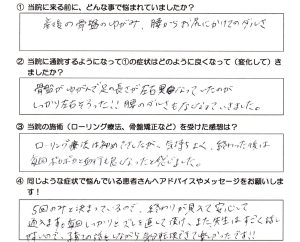 ① 当院に来る前に、どんな事で悩まれていましたか?
産後の骨盤のゆがみ、腰からお尻にかけてのダルさ
② 当院に通院するようになって①の症状はどのように良くなって(変化して)き
ましたか?
骨盤がゆがんで足の長さが左右 なっていたのが
しっかり左右そろった!!腰のダルさもなくなっていきました。
③ 当院の施術(ローリング療法、骨盤矯正など)を受けた感想は?
ローリング療法は初めてでしたが、気持ちよく、終わった後は
毎回 足 なったと感じました。
④ 同じような症状で悩んでいる患者さんへアドバイスやメッセージをお願いしま
す!
5回のみと決まっているので、終わりが見えて安心して
通えます。毎回しっかりと を直して頂け、また先生はすごく話し
ので、 話しながら 矯正できて 良かったです!!